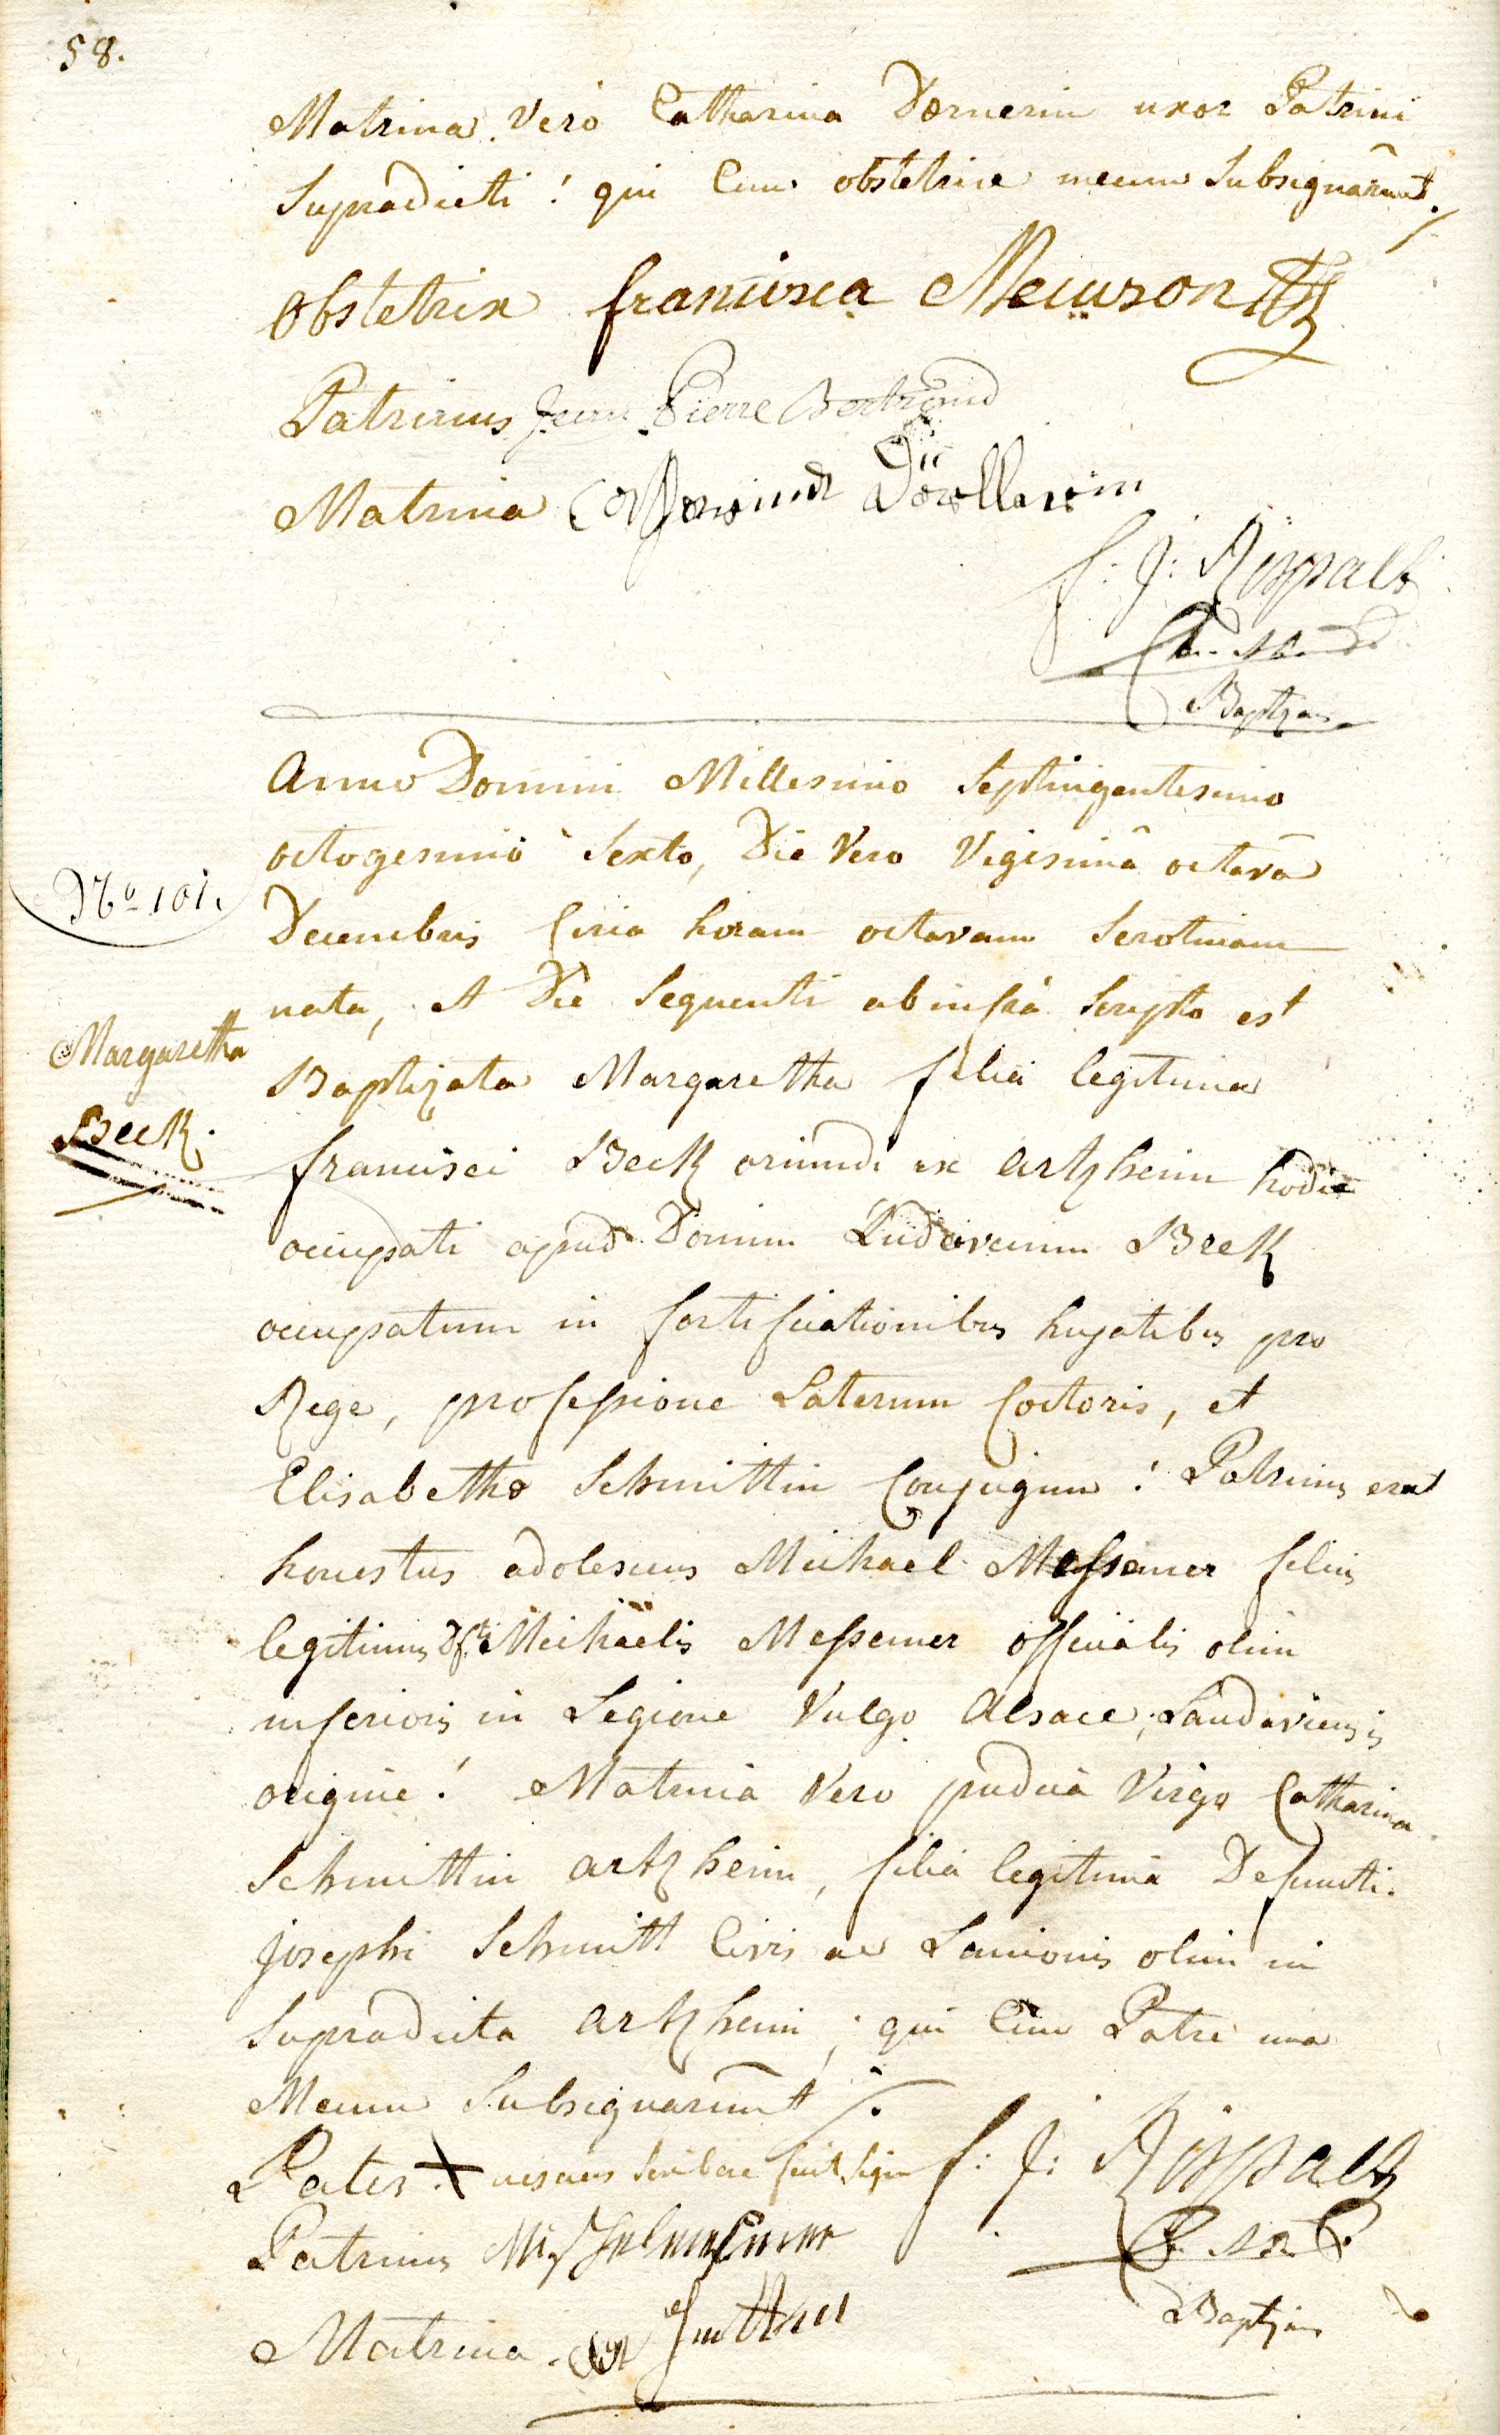 58.
Matrina Vero Catharina Dörnerin uxor Patrini
Supradicti ! qui Cum obstetrice mecum Subsignârunt ./
Obstetrix francisca Meuuson
Patrinus Jean Pierre Bertrand
Matrina
f: J:
Baptizans
Anno Domini Millesimo Septingentesimo
octogesimo Sexto, Die Vero Vigesimâ octavâ
No 101.
Decembris Circa horam octavam Serotinam
nata, et Die Sequenti ab infrà Scripto est
Margaretha
Baptizata Margaretha filia legitima
Beck.
francisci Beck oriundi ex Artzheim hodie
occupati apud Domin Ludovicum Beck
occupatum in fortificationibus hujatibus pro
Rege, professione Laterum Coctoris, et
Elisabetha Schmittin Conjugum ! Patrinus erat
honestus adolescens Michael Messemer filius
legitimus Dfti Michaelis Messemer officialis olim
inferioris in Legione Vulgo Alsace, Landaviensis
origine ! Matrina Vero pudica Virgo Catharina
Schmittin Artzheim, filia legitima Defuncti
Josephi Schmitt Civis ac Lanionis olim in
Supradicta Artzheim, qui Cum Patre una
Mecum Subsignarunt ./.
Pater + nesciens scribere fecit sign
f: J:
Patrinus
Baptizans
Matrina